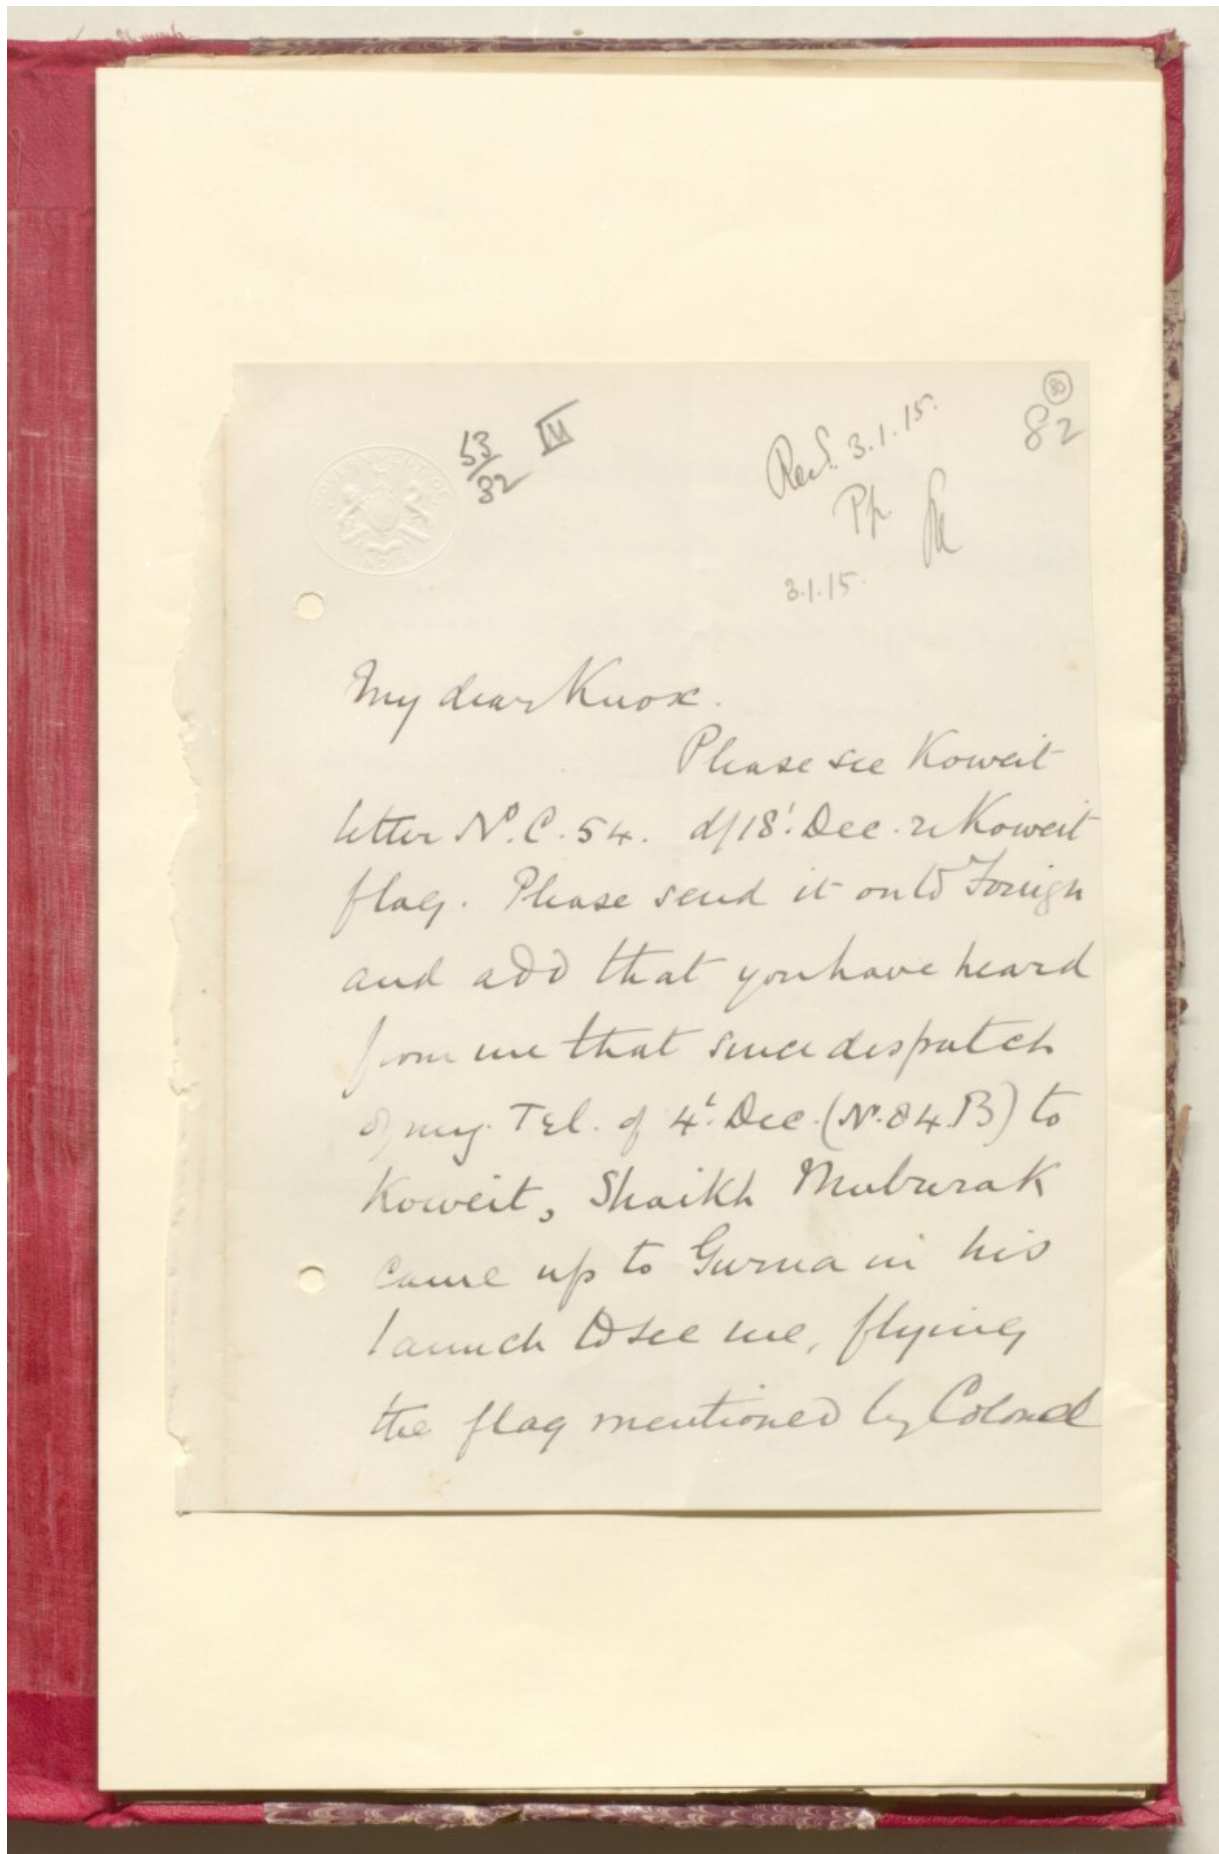 80
82
53/82 III
Recd. 3.1.15.
Pp.
3.1.15.
GOVERNMENT OF INDIA
My dear Knox.
Please see Koweit
letter No. C. 54. d/18' Dec. re Koweit
flag. Please send it on to Foreign
and add that you have heard
from me that since despatch
of my Tel. of 4' Dec. (No. 84. B) to
Koweit, Shaikh Mubarak
came up to Gurna in his
launch to see me, flying
the flag mentioned by Colonel